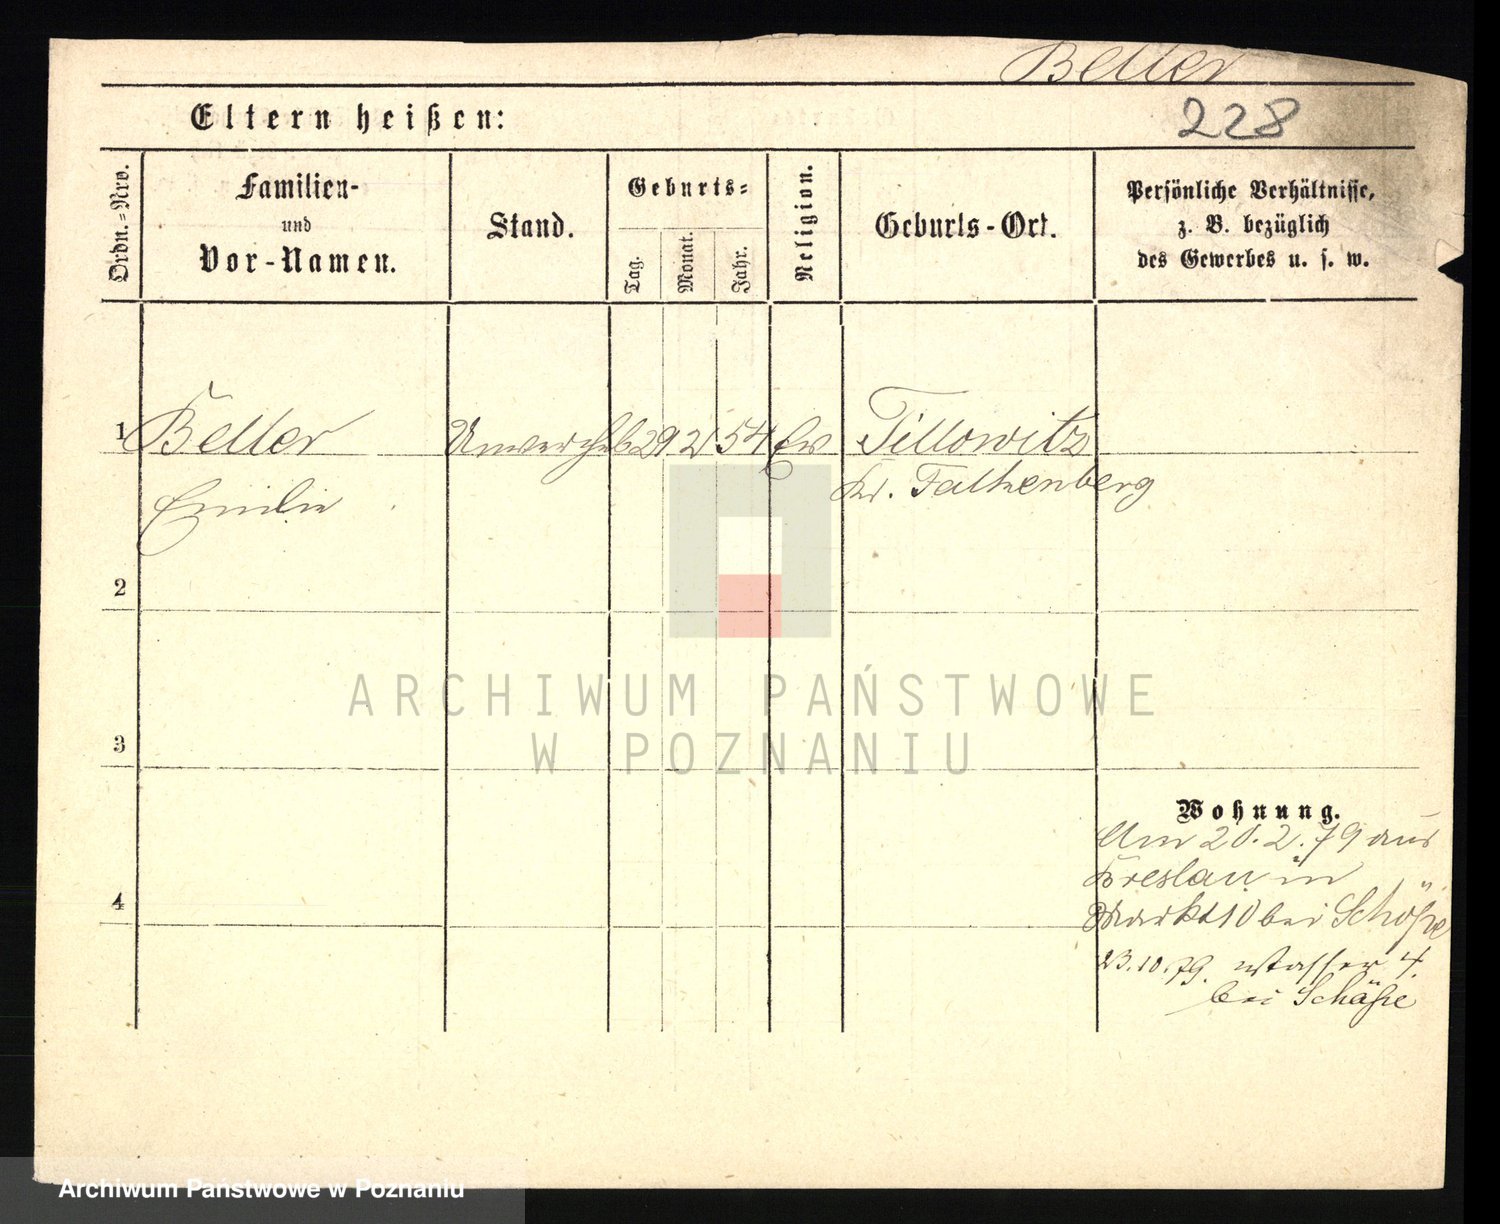 Beller
228
Eltern heißen:
Ordn.=Nro.
Familien-
und
Vor-Namen.
Stand.
Geburts=
Tag.
Monat.
Jahr.
Religion.
Geburts-Ort.
Persönliche Verhältnisse,
z. B. bezüglich
des Gewerbes u. s. w.
1 Beller 29 2 54 Ev Tillowitz
Emilie Kr. Falkenberg
2
3
4
Wohnung.
Am 20.2.79 aus
Breslau in
Markt 10 bei
23.10.79. Wasser 4.
bei
ARCHIWUM PAŃSTWOWE
W POZNANIU
Archiwum Państwowe w Poznaniu